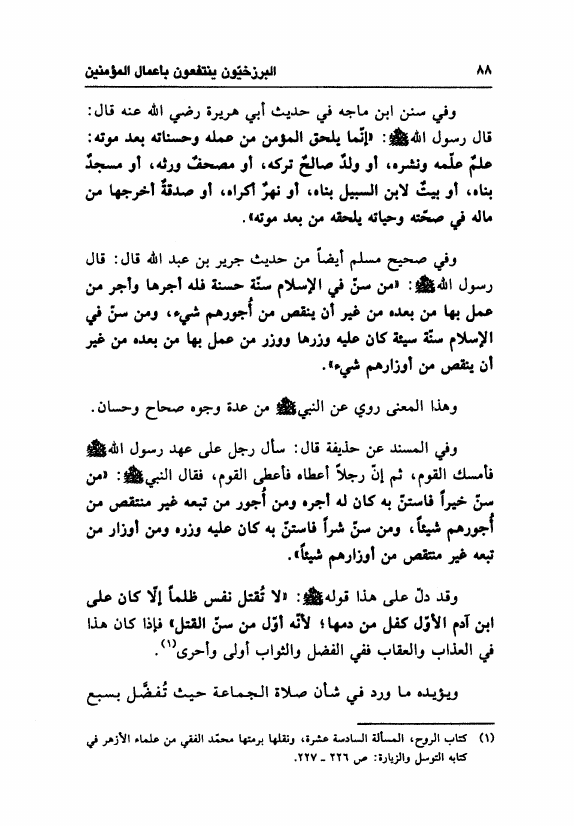 ٨٨ البرزخيّون ينتفعون بأعمال المؤمنين
وفي سنن ابن ماجه في حديث أبي هريرة رضي الله عنه قال:
قال رسول الله ﷺ: «إنّما يلحق المؤمن من عمله وحسناته بعد موته:
علمٌ علّمه ونشره، أو ولدٌ صالحٌ تركه، أو مصحفٌ ورثه، أو مسجدٌ
بناه، أو بيتٌ لابن السبيل بناه، أو نهرٌ أكراه، أو صدقةٌ أخرجها من
ماله في صحّته وحياته يلحقه من بعد موته».
وفي صحيح مسلم أيضاً من حديث جرير بن عبد الله قال: قال
رسول الله ﷺ: «من سنّ في الإسلام سنّة حسنة فله أجرها وأجر من
عمل بها من بعده من غير أن ينقص من أُجورهم شيء، ومن سنّ في
الإسلام سنّة سيئة كان عليه وزرها ووزر من عمل بها من بعده من غير
أن ينقص من أوزارهم شيء».
وهذا المعنى روي عن النبي ﷺ من عدة وجوه صحاح وحسان.
وفي المسند عن حذيفة قال: سأل رجل على عهد رسول الله ﷺ
فأمسك القوم، ثم إنّ رجلاً أعطاه فأعطى القوم، فقال النبي ﷺ: «من
سنّ خيراً فاستنّ به كان له أجره ومن أُجور من تبعه غير منتقص من
أُجورهم شيئاً، ومن سنّ شراً فاستنّ به كان عليه وزره ومن أوزار من
تبعه غير منتقص من أوزارهم شيئاً».
وقد دلّ على هذا قوله ﷺ: «لا تُقتل نفس ظلماً إلّا كان على
ابن آدم الأوّل كفل من دمها؛ لأنّه أوّل من سنّ القتل» فإذا كان هذا
في العذاب والعقاب ففي الفضل والثواب أولى وأحرى(١).
ويؤيده ما ورد في شأن صلاة الجماعة حيث تُفضَّل بسبع
(١) كتاب الروح، المسألة السادسة عشرة، ونقلها برمتها محمّد الفقي من علماء الأزهر في
كتابه التوسل والزيارة: ص ٢٢٦ ـ ٢٢٧.